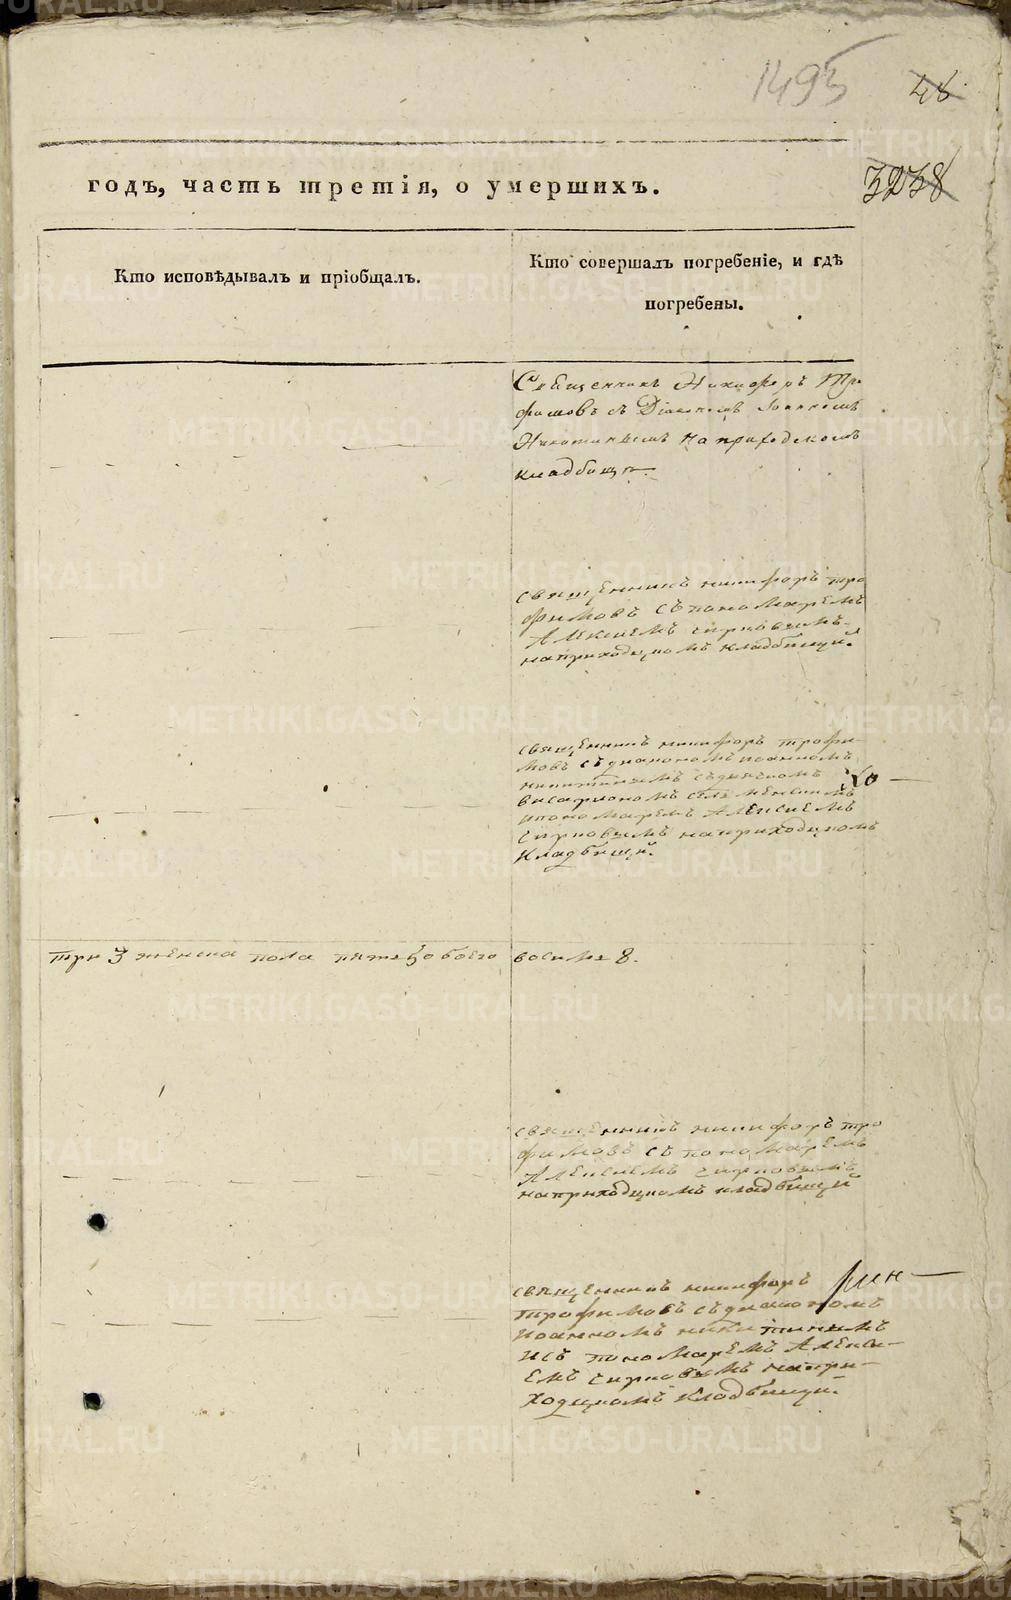 1495
48
3238
годъ, часть третія, о умершихъ.
Кто исповѣдывалъ и пріобщалъ.
Кто совершалъ погребеніе, и гдѣ
погребены.
Священникъ Никифоръ Тро
фимовъ съ Діакономъ Іоанномъ
Никитинымъ на приходскомъ
кладбищѣ.
священникъ никифоръ тро
фимовъ съ пономаремъ
Алексѣемъ
на приходскомъ кладбищѣ.
священникъ никифоръ трофи-
мовъ съ диакономъ иоанномъ
никитинымъ съ дьячкомъ
висарионом
и пономаремъ Алексеемъ
на приходскомъ
кладбищѣ.
три 3 женска пола пять 5 обоего восимь 8.
священникъ никифоръ тро
фимовъ съ пономаремъ
Алексеемъ
на приходскомъ кладбищѣ
священникъ никифоръ
трофимовъ съ диакономъ
иоанномъ никитинымъ
и съ пономаремъ Алексе-
емъ на при-
ходскомъ кладбищѣ.
METRIKI.GASO-URAL.RU